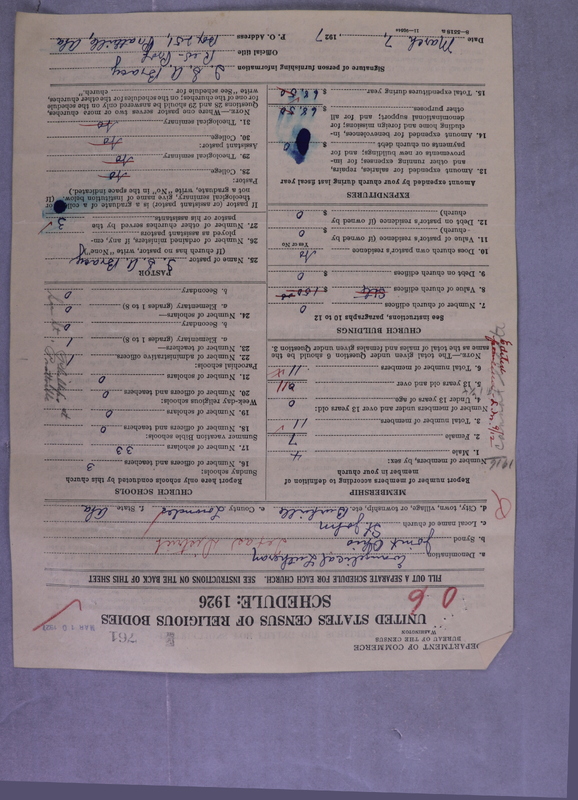 DEPARTMENT OF COMMERCE
BUREAU OF THE CENSUS
WASHINGTON
761
UNITED STATES CENSUS OF RELIGIOUS BODIES
SCHEDULE: 1926
0 6
FILL OUT A SEPARATE SCHEDULE FOR EACH CHURCH. SEE INSTRUCTIONS ON THE BACK OF THIS SHEET
a. Denomination Evangelical Lutheran
b. Synod Joint Ohio Texas District
c. Local name of church St John
d. City, town, village, or township, etc. e. County Lowndes f. State Ala
MEMBERSHIP
Report number of members according to definition of member in your church
Number of members, by sex:
1. Male 4
2. Female 7
3. Total number of members 11
Number of members under and over 13 years old:
4. Under 13 years of age 0
5. 13 years old and over 11
6. Total number of members 11
NOTE.—The total given under Question 6 should be the same as the total of males and females given under Question 3.
CHURCH BUILDINGS
See instructions, paragraphs 10 to 12
7. Number of church edifices 0
8. Value of church edifices $
9. Debt on church edifices $ 0
10. Does church own pastor's residence No
Yes or No
11. Value of pastor's residence (if owned by church) $ 0
12. Debt on pastor's residence (if owned by church) $ 0
EXPENDITURES
Amount expended by your church during last fiscal year
13. Amount expended for salaries, repairs, and other running expenses; for improvements or new buildings; and for payments on church debt $ 0
14. Amount expended for benevolences, including home and foreign missions; for denominational support; and for all other purposes $ 68.50
15. Total expenditures during year $ 68.50
CHURCH SCHOOLS
Report here only schools conducted by this church
Sunday schools:
16. Number of officers and teachers 3
17. Number of scholars 33
Summer vacation Bible schools:
18. Number of officers and teachers 0
19. Number of scholars 0
Week-day religious schools:
20. Number of officers and teachers 0
21. Number of scholars 0
Parochial schools:
22. Number of administrative officers 1
23. Number of teachers—
a. Elementary (grades 1 to 8) 1
b. Secondary 0
24. Number of scholars—
a. Elementary (grades 1 to 8) 0
b. Secondary 0
PASTOR
25. Pastor's name
(If church has no pastor write "None")
26. Number of ordained ministers, if any, employed as assistant pastors
27. Number of other churches served by the pastor or his assistants 3
If pastor (or assistant pastor) is a graduate of a college or theological seminary, give name of institution below. (If not a graduate, write "No" in the space indicated.)
Pastor:
28. College No
29. Theological seminary No
Assistant pastor:
30. College No
31. Theological seminary No
NOTE.—Where one pastor serves two or more churches, Questions 25 and 29 should be answered only on the schedule for one of the churches; on the schedules for the other churches write "See schedule for church."
Signature of person furnishing information
Official title
P. O. Address Box 251,
Date March 7, 1927